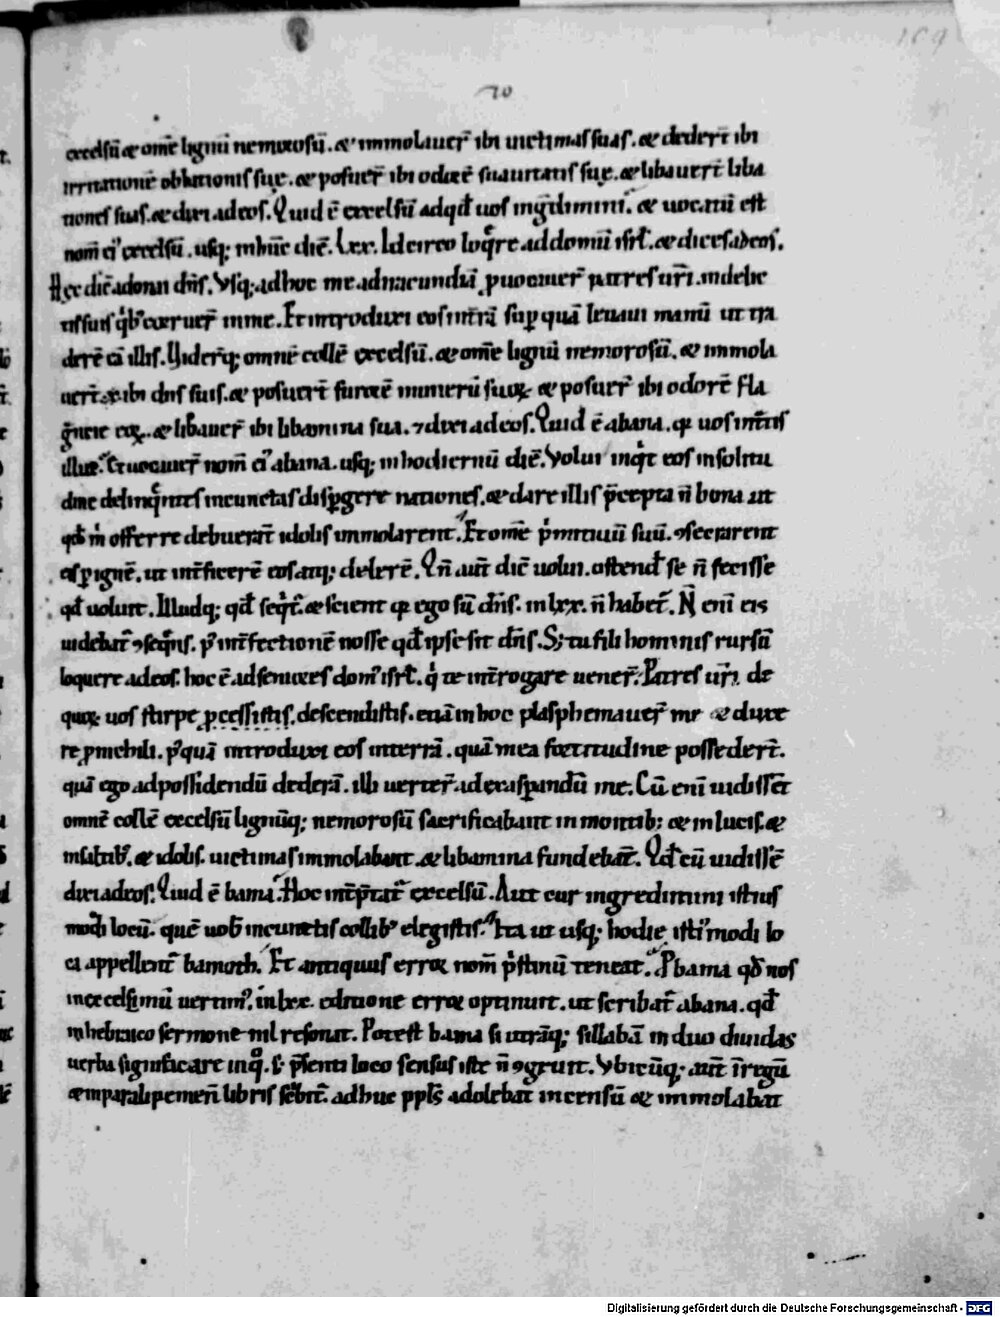 169
20
excelsū & om̄e lignū nemorosū. & immolauer̄ ibi uictimas suas. & deder̄t ibi
irritationē oblationis suę. & posuer̄ ibi odorē suauitatis suę. & libauer̄t liba
tiones suas. & dixi ad eos. Quid ē excelsū ad qđ uos ingᵉdimini. & uocatū est
nom̄ ei' excelsū. usq; in hūc diē. lxx. Idcirco loqͤre ad domū isrł. & dices ad eos.
Hęc dic̄ adonai dn̄s. Vsq; adhuc me ad iracundiā ꝓuocauer̄ patres ur̄i. in delic
tis suis qͥb' corruer̄ in me. Et introduxi eos in tr̄ā sup quā leuaui manū ut tra
derē eā illis. Vider̄q; omnē collē excelsū. & om̄e lignū nemorosū. & immola
uer̄t ibi diis suis. & posuer̄t furorē munerū suoꝝ & posuer̄ ibi odorē fla
gͣntie eoꝝ. & libauer̄ ibi libamina sua. ⁊ dixi ad eos. Quid ē abana. qͥ uos intͣtis
illuc. Et uocauer̄ nom̄ ei' abana. usq; in hodiernū diē. Volui inqͥt eos in solitu
dine delinqͤntes in cunctas disꝑgere nationes. & dare illis p̄cepta n̄ bona ut
qđ m̍ offerre debuerāt idolis immolarent. Et om̄e pͥmitiuū suū ꝯsecrarent
a. ut int̄ficerē eos atq; delerē. Qn̄ aut̄ dic̄ uolui. ostend̄ se n̄ fecisse
qđ uoluit. Illudq; qđ seqͥt̄. & scient qͥ ego sū dn̄s. in lxx. n̄ habet̄. N̄ eni eis
uidebat̄ ꝯseqͤns. p' int̄fectionē nosse qđ ipse sit dn̄s. S; tu fili hominis rursū
loquere ad eos. hoc ē ad seniores dom' isrł. qͥ te int̄rogare uener̄. Patres ur̄i. de
quoꝝ uos stirpe ꝓcessistis. descendistis. etiā in hoc plasphemauer̄ me & duxe
re ꝓ nichili. p'quā introduxi eos in terrā. quā mea fortitudine posseder̄t.
quā ego ad possidendū dederā. illi uerter̄ ad exasꝑandū me. Cū eni uidiss̄et
omnē collē excelsū lignūq; nemorosū sacrificabant in montib; & in lucis. &
in siluib'. & idolis. uictimas immolabant. & libamina fundebāt. Qđ cū uidissē
dixi ad eos. Quid ē bama. Hoc int̄p̄tat̄ excelsū. Aut cur ingredimini istius
modi locū. quē uob̄ in cunctis collib' elegistis. Ita ut usq; hodie isti'modi lo
ca appellent̄ bamoth. Et antiquus error nom̄ pͥstinū teneat. P bama qđ nos
in excelsū uertim'. in lxx. editione error optinuit. ut scribat̄ abana. qđ
in hebraico sermone nil resonat. Potest bama si utraq; sillabā in duo diuidas
uerba significare in qͦ. s; p̄senti loco sensus iste n̄ ꝯgruit. Vbicūq; aut̄ in regū
& in paralipemen̄ libris scͥbit̄. adhuc ppłs adolebat incensū & immolabat
Digitalisierung gefördert durch die Deutsche Forschungsgemeinschaft - DFG